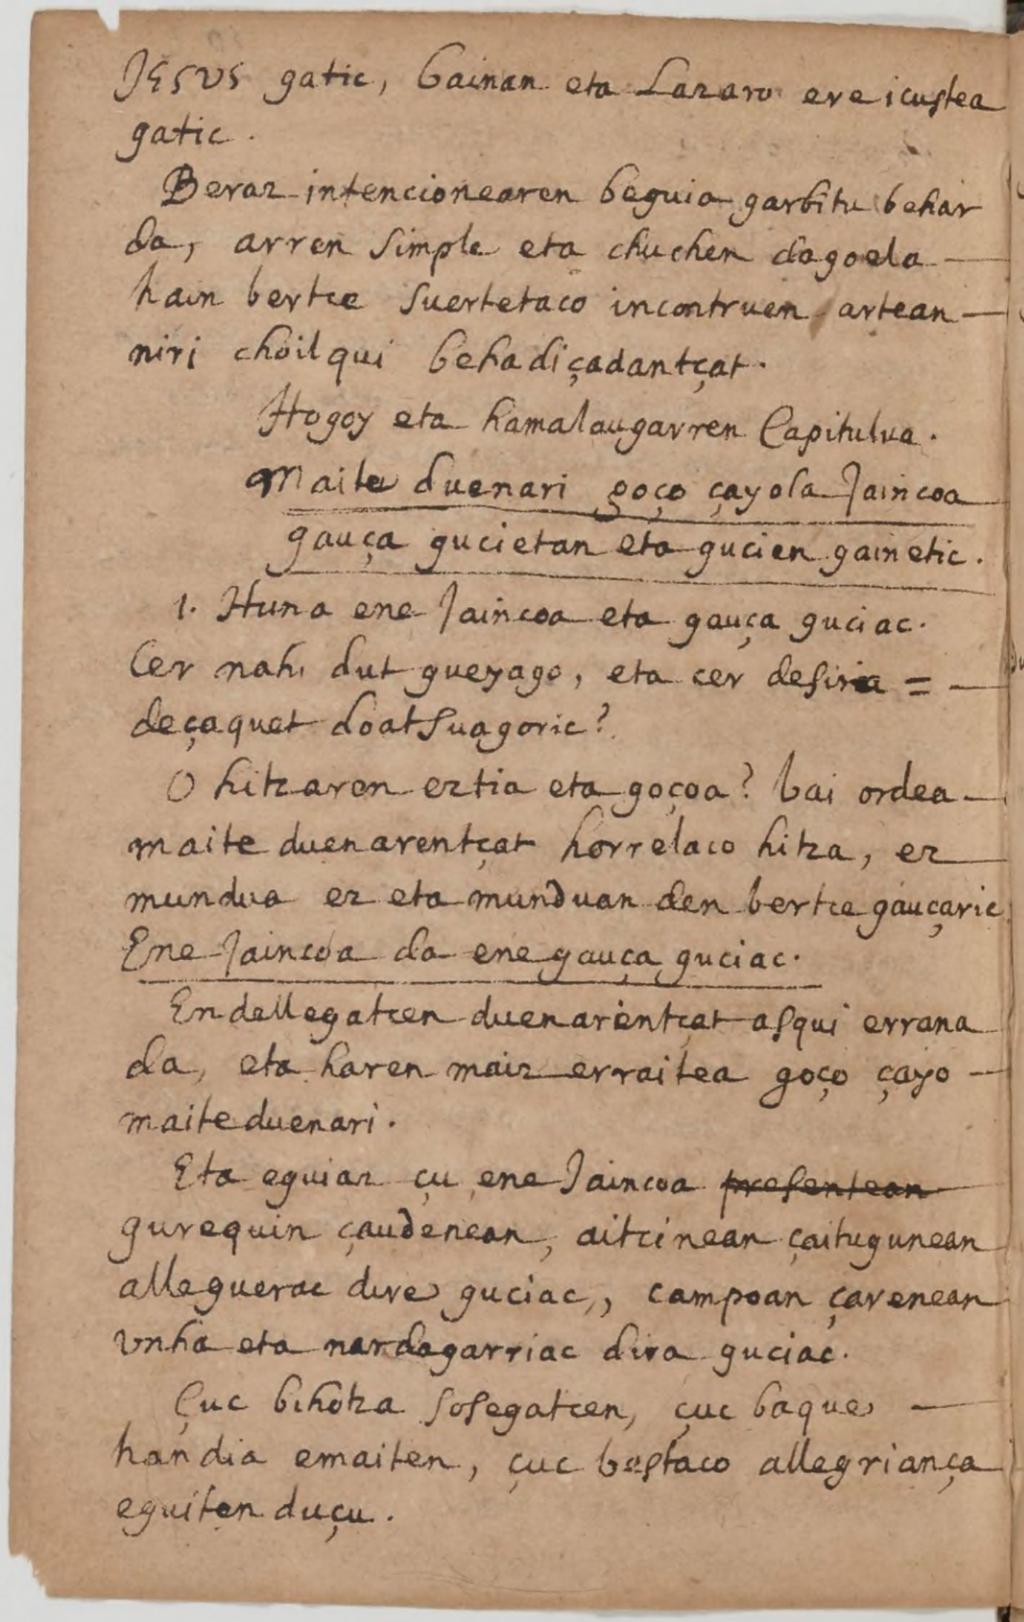 JESUS gatic, bainan eta Lazaro ere icustea
gatic.
Beraz intencionearen beguia garbitu behar
da, arren simple eta chuchen dagoela
hain bertce suertetaco incontruen artean
niri choil qui beha diçadantçat.
Hogoy eta hamalaugarren Capitulua.
Maite duenari goço çayola Jaincoa
gauça gucietan eta gucien gainetic.
1. Huna ene Jaincoa eta gauça guciac.
Cer nahi dut gueyago, eta cer desira =
deçaquet doatsuagoric?
O hitzaren eztia eta goçoa? bai ordea
maite duenarentçat horrelaco hitza, ez
mundua ez eta munduan den bertce gauçaric
Ene Jaincoa da ene gauça guciac.
Endellegatcen duenarentçat asqui errana
da, eta haren maiz erraitea goço çayo
maite duenari.
Eta eguiaz çu ene Jaincoa presentean
gurequin çaudenean, aitcinean çaitugunean
alleguerac dire guciac, campoan çarenean
vnha eta nardagarriac dira guciac.
Çuc bihotza sosegatcen, çuc baque
handia emaiten, çuc bestaco allegriança
eguiten duçu.